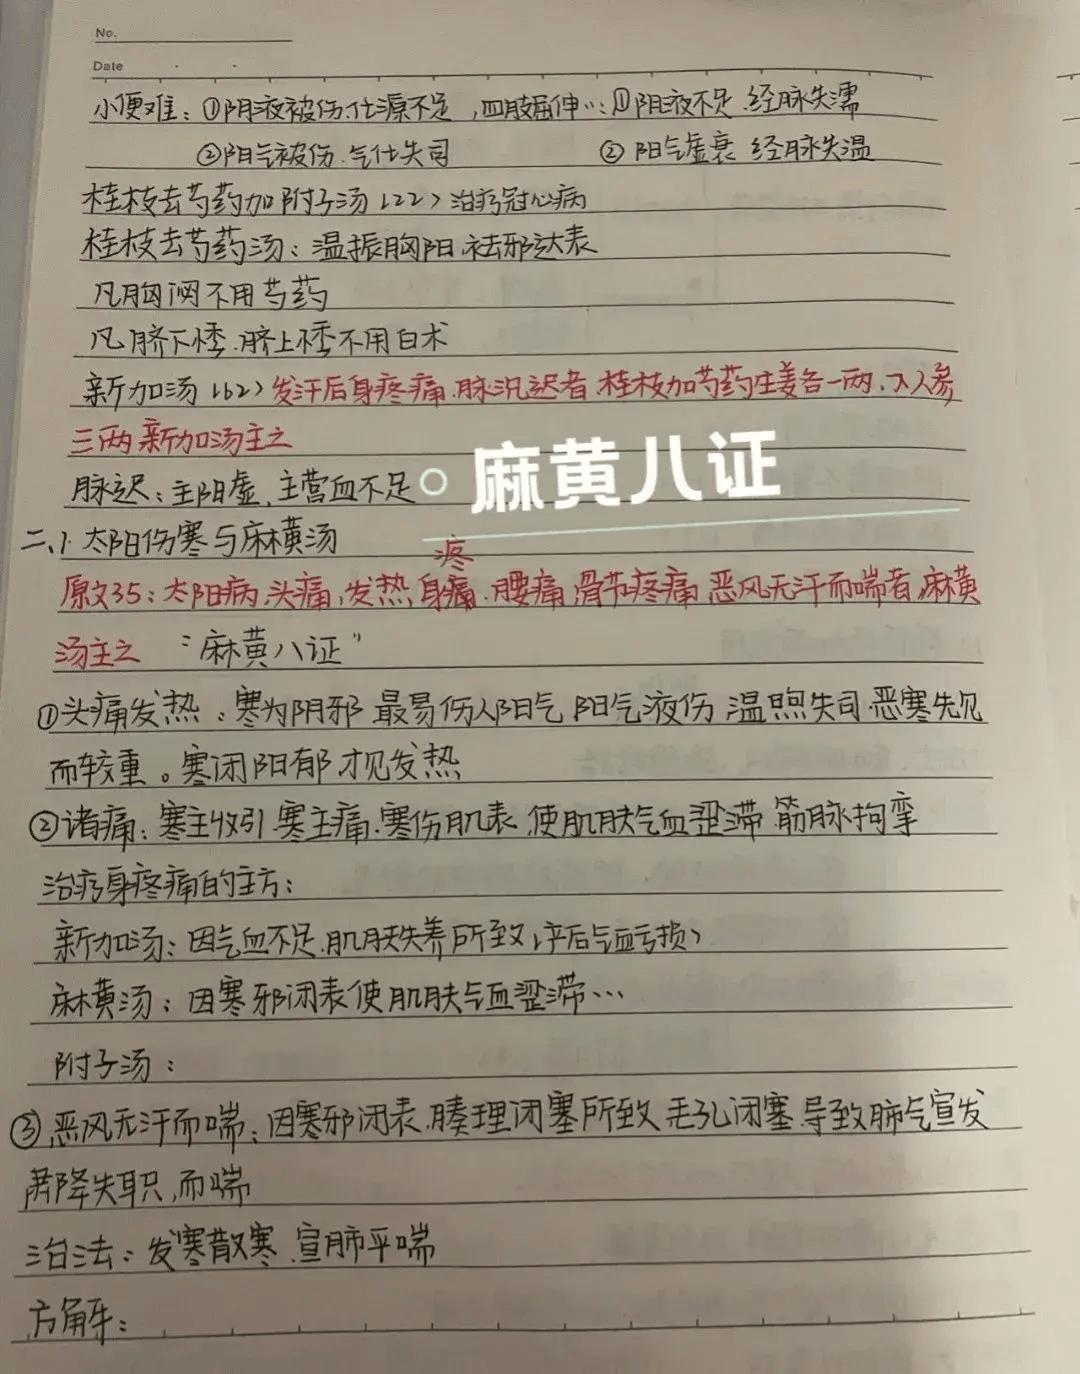 No.
Date
小便难：①阴液被伤.化源不足，四肢屈伸…：①阴液不足.经脉失濡
②阳气被伤.气化失司 ②阳气虚衰 经脉失温
桂枝去芍药加附子汤（22）治疗冠心病
桂枝去芍药汤：温振胸阳.祛邪达表
凡胸闷不用芍药
凡脐下悸.脐上悸不用白术
新加汤（62）发汗后身疼痛.脉沉迟者.桂枝加芍药生姜各一两、人参
三两新加汤主之
脉迟：主阳虚、主营血不足
麻黄八证
二、1.太阳伤寒与麻横汤
疼
原文35：太阳病,头痛,发热,身痛.腰痛,骨节疼痛,恶风无汗而喘者,麻黄
汤主之 “麻黄八证”
①头痛发热：寒为阴邪 最易伤人阳气 阳气液伤,温煦失司.恶寒先见
而较重。寒闭阳郁才见发热
②诸痛：寒主收引.寒主痛.寒伤肌表,使肌肤气血涩滞.筋脉拘挛
治疗身疼痛的主方：
新加汤：因气血不足.肌肤失养所致（产后气血亏损）
麻黄汤：因寒邪闭表使肌肤气血涩滞…
附子汤：
③恶风无汗而喘：因寒邪闭表.腠理闭塞所致.毛孔闭塞.导致肺气宣发
肃降失职,而喘
治法：发寒散寒.宣肺平喘
方解：